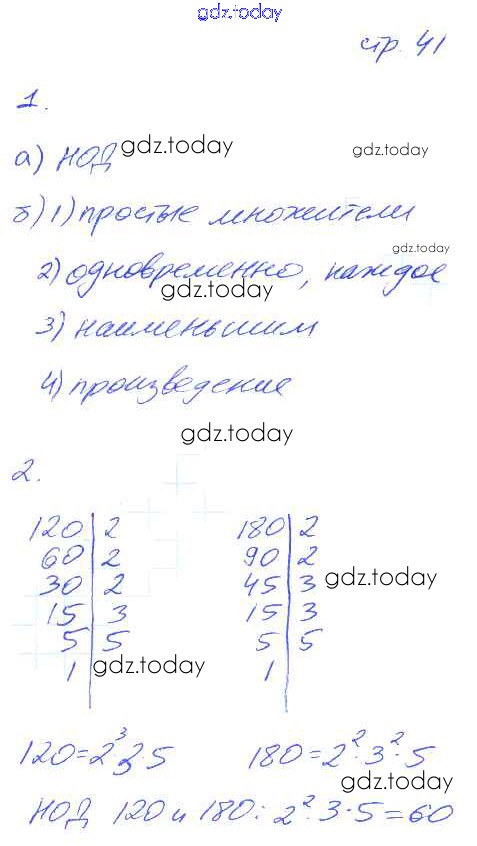 gdz.today
стр. 41
1.
а) НОД gdz.today gdz.today
б) 1) простые множители
gdz.today
2) одновременно, каждое
gdz.today
3) наименьшим
4) произведение
gdz.today
2.
120|2 180|2
60|2 90|2
30|2 45|3 gdz.today
15|3 15|3
5|5 5|5
1| gdz.today 1|
120=2³·3·5 180=2²·3²·5
gdz.today
НОД 120 и 180: 2²·3·5=60